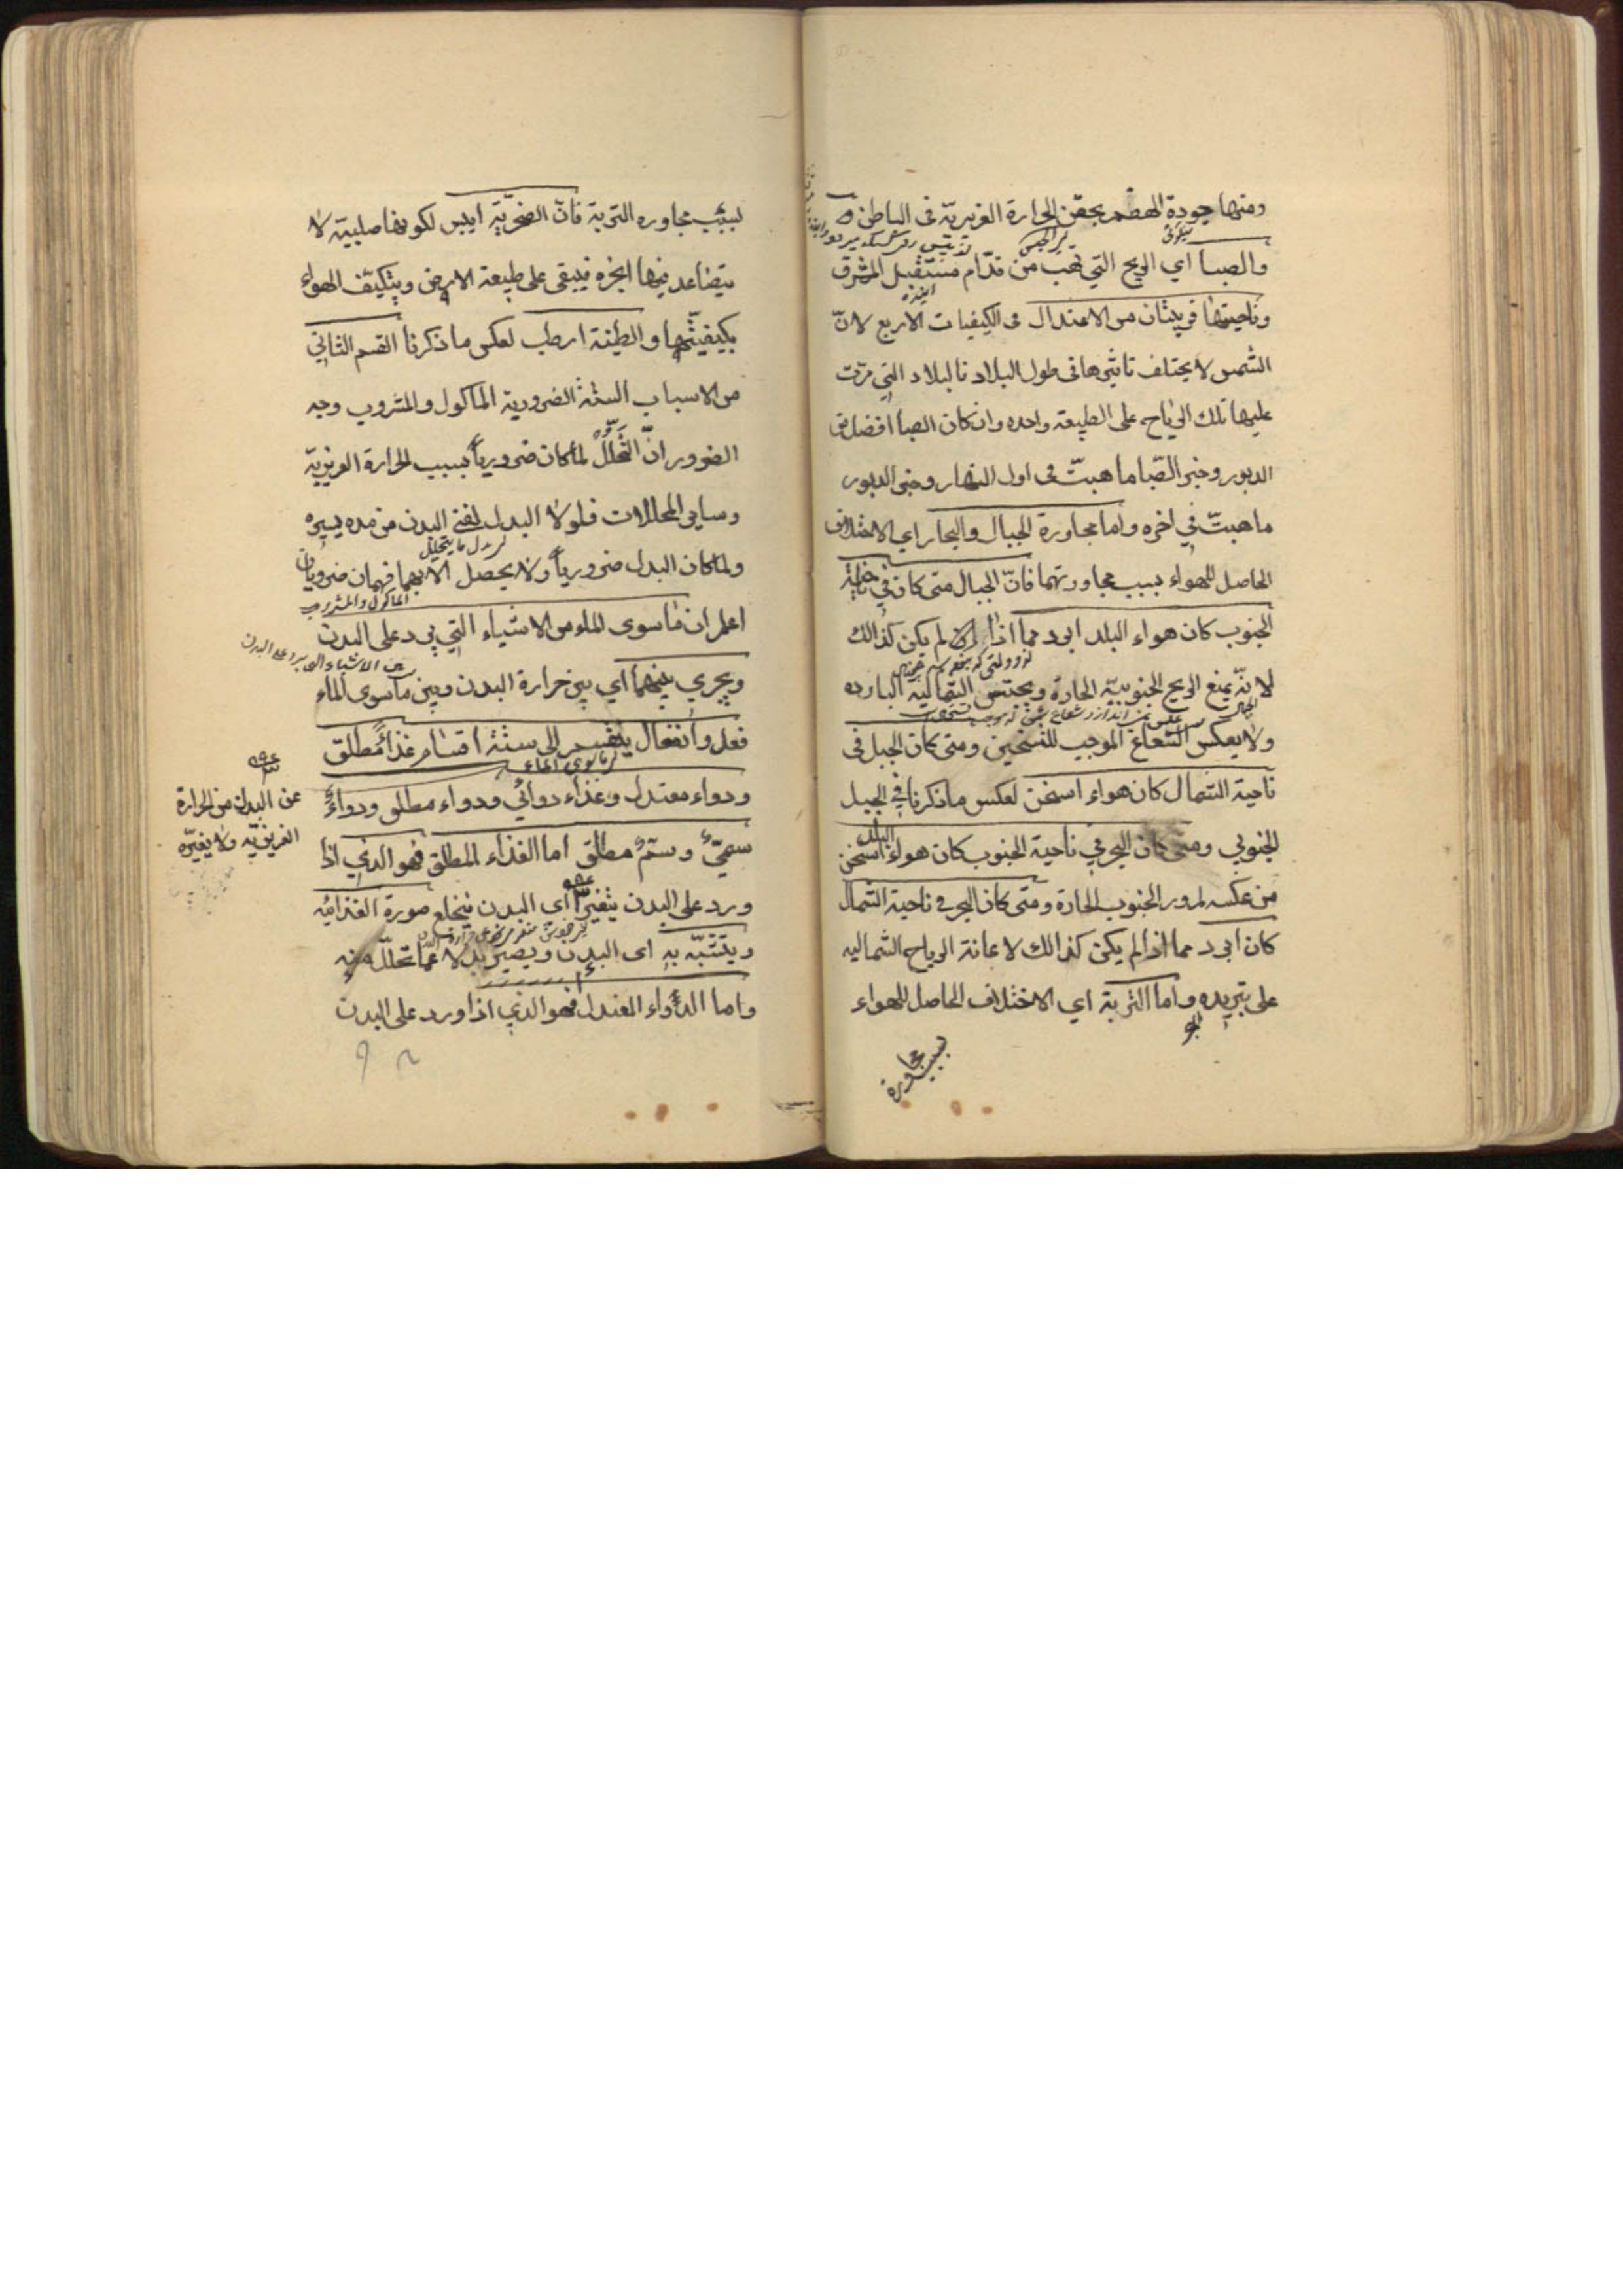 ومنها جودة الهضم بحقن الحرارة الغريزية فى الباطن
والصبا اي الريح التي تهب من قدّام مستقبل المشرق
وناحيتها قريبتان من الاعتدال فى الكيفيات الاربع لانّ
الشمس لا يختلف تاثيرها فى طول البلاد فالبلاد التي مرّت
عليها تلك الرياح على الطبيعة واحده وان كان الصبا افضل من
الدبور وخير الصّبا ما هبتّ فى اول النهار وخير الدبور
ما هبتّ في اخره واما مجاورة الجبال والبحار اي الاختلاف
الحاصل للهواء بسبب مجاورتهما فانّ الجبال متى كان في ناحية
الجنوب كان هواء البلد ابرد مما اذا لم يكن كذالك
لانّه يمنع الريح الجنوبيّة الحارة ويحتبس الشمالية البارده
ولا يعكس الشعاع الموجب للتسخين ومتى كان الجبل فى
ناحية الشمال كان هواء اسخن لعكس ما ذكرنا في الجبل
الجنوبي ومتى كان البحر في ناحية الجنوب كان هواء البلد اسخن
من عكسه لمرور الجنوب الحارة ومتى كان البحر فى ناحية الشمال
كان ابرد مما اذا لم يكن كذالك لاعانة الرياح الشماليه
على تبريده واما التربة اي الاختلاف الحاصل للهواء
بسبب مجاورة
لسبب مجاوره التربة فانّ الصخريّة ايبس لكونها صلبية لا
يتصاعد منها ابخره فيبقى على طبيعة الارض ويتكيّف الهواء
بكيفيتها والطينة ارطب لعكس ما ذكرنا القسم الثاني
من الاسباب الستة الضرورية الماكول والمشروب وجه
الضرور انّ التحلّل لما كان ضرورياً بسبب الحرارة الغريزيّة
وساير المحللات فلولا البدل لفني البدن من مده يسيره
لبدل ما يتحلل
ولما كان البدل ضرورياً ولا يحصل الا بهما فهمان ضروريان
الماكول والمشروب
اعلم ان ما سوى الماء من الاشياء التي يرد على البدن
من الاشياء التى يرد على البدن
ويجري بينهما اي بين حرارة البدن وبين ما سوى الماء
فعل وانفعال ينقسم الى ستة اقسام غذاء مطلق
ودواء معتدل وغذاء دوائي ودواء مطلق ودواء
سمّي وسمّ مطلق اما الغذاء المطلق فهو الذي اذا
ورد على البدن يتغير اى البدن فيخلع صورة الغذائيه
ويتشبّه به اى البدن ويصير بدلا عما تحلّل منه
واما الدواء المعتدل فهو الذي اذا ورد على البدن
عن البدن من الحرارة
الغريزيّه ولا يغيّره